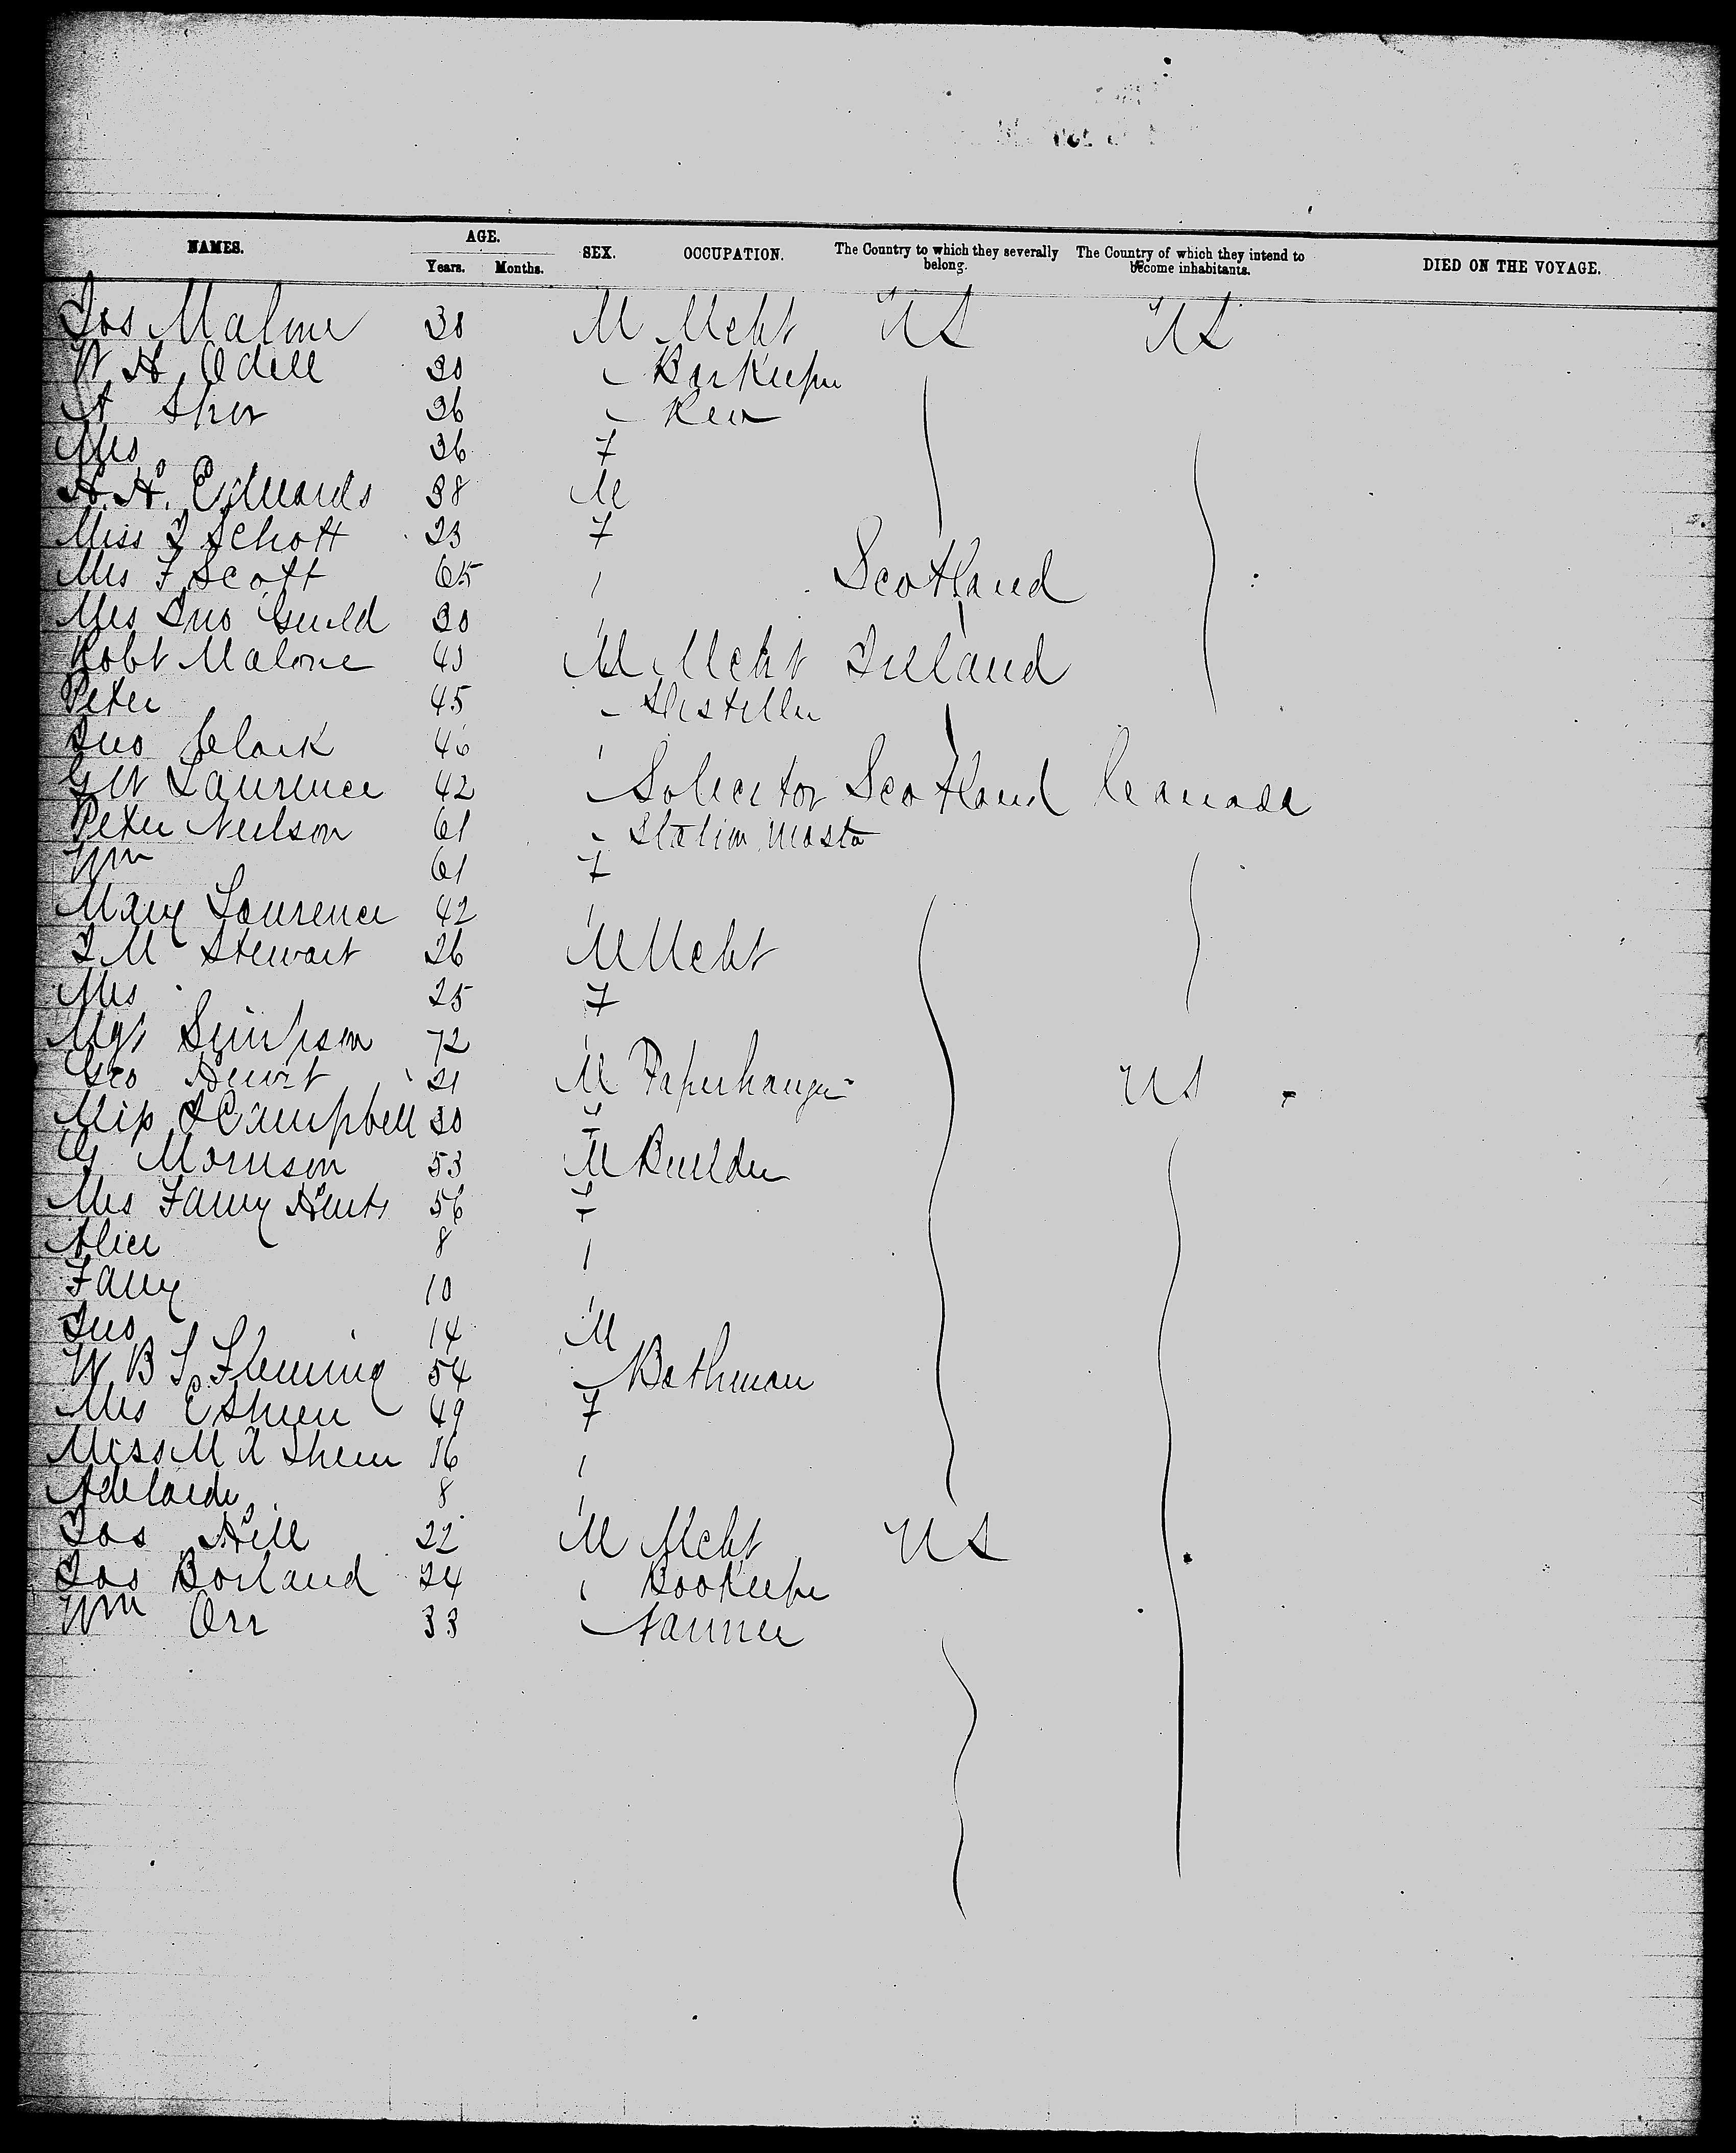 NAMES. AGE. SEX. OCCUPATION. The Country to which they severally belong. The Country of which they intend to become inhabitants. DIED ON THE VOYAGE.
Years. Months.
Jos Malone 30 M Mcht US US
W. H. Odell 30 Barkeeper
A 36 Rev
Mrs 36 F
H. H. Edwards 38 M
Miss J Schott 23 F
Mrs F Scott 65 Scotland
Mrs Jno Guild 30
Robt Malone 43 M Mcht Ireland
Peter 45 Distiller
Jno Clark 40
G W Laurence 42 Solicitor Scotland Canada
Peter Neilson 61 Station Master
Wm 61 F
Mary Laurence 42
J M Stewart 26 M Mcht
Mrs 25 F
Mgt Simpson 72
Geo 21 M Paperhanger US
Miss J Campbell 30 F
G Morrison 53 M Builder
Mrs Fanny 56 F
Alice 8
Fanny 10
Jno 14 M
W B S Fleming 54
Mrs E 49 F
Miss M 16
Adelaide 8
Jos Hill 22 M Mcht US
Jos Borland 24 Bookeeper
Wm Orr 33